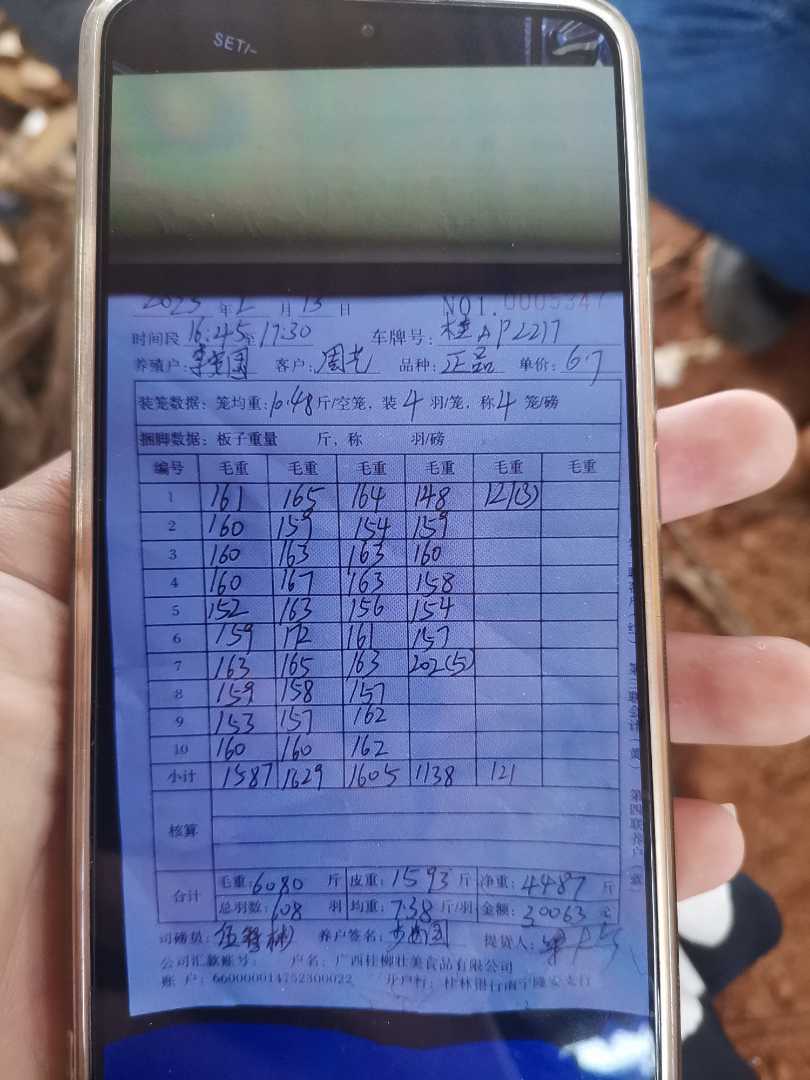 SET/-
2023 年2 月13日 NO1.0005347
时间段 16:45至17:30 车牌号: 桂AP2217
养殖户: 客户: 周光 品种: 正品 单价: 6.7
装笼数据: 笼均重: 10.48斤/空笼, 装4 羽/笼, 称4 笼/磅
捆脚数据: 板子重量 斤, 称 羽/磅
编号 毛重 毛重 毛重 毛重 毛重 毛重
1 161 165 164 148 121(3)
2 160 159 154 159
3 160 163 163 160
4 160 167 163 158
5 152 163 156 154
6 159 172 161 157
7 163 165 163 202(5)
8 159 158 157
9 153 157 162
10 160 160 162
小计 1587 1629 1605 1138 121
核算
合计 毛重: 6080 斤 皮重: 1593 斤 净重: 4487 斤
总羽数: 608 羽 均重: 7.38 斤/羽 金额: 30063 元
司磅员: 养户签名: 提货人:
公司汇款账号: 户名: 广西桂柳壮美食品有限公司
账户: 660000014752300022 开户行: 桂林银行南宁隆安支行